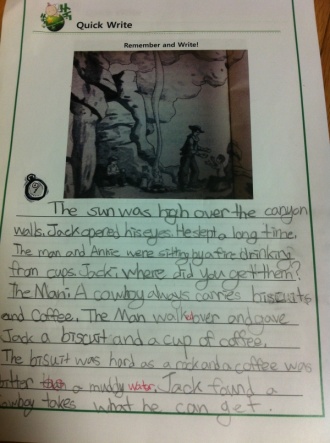 Quick Write
Remember and Write!
The sun was high over the canyon
walls. Jack opened his eyes. He slept a long time.
The man and Annie were sitting by a fire drinking
from cups. Jack: where did you get them?
The Man: A cowboy always carries biscuits
and Coffee. The Man walked over and gave
Jack a biscuit and a cup of coffee.
The biscuit was hard as a rock and a coffee was
bitter than a muddy water. Jack found a
cowboy takes what he can get.